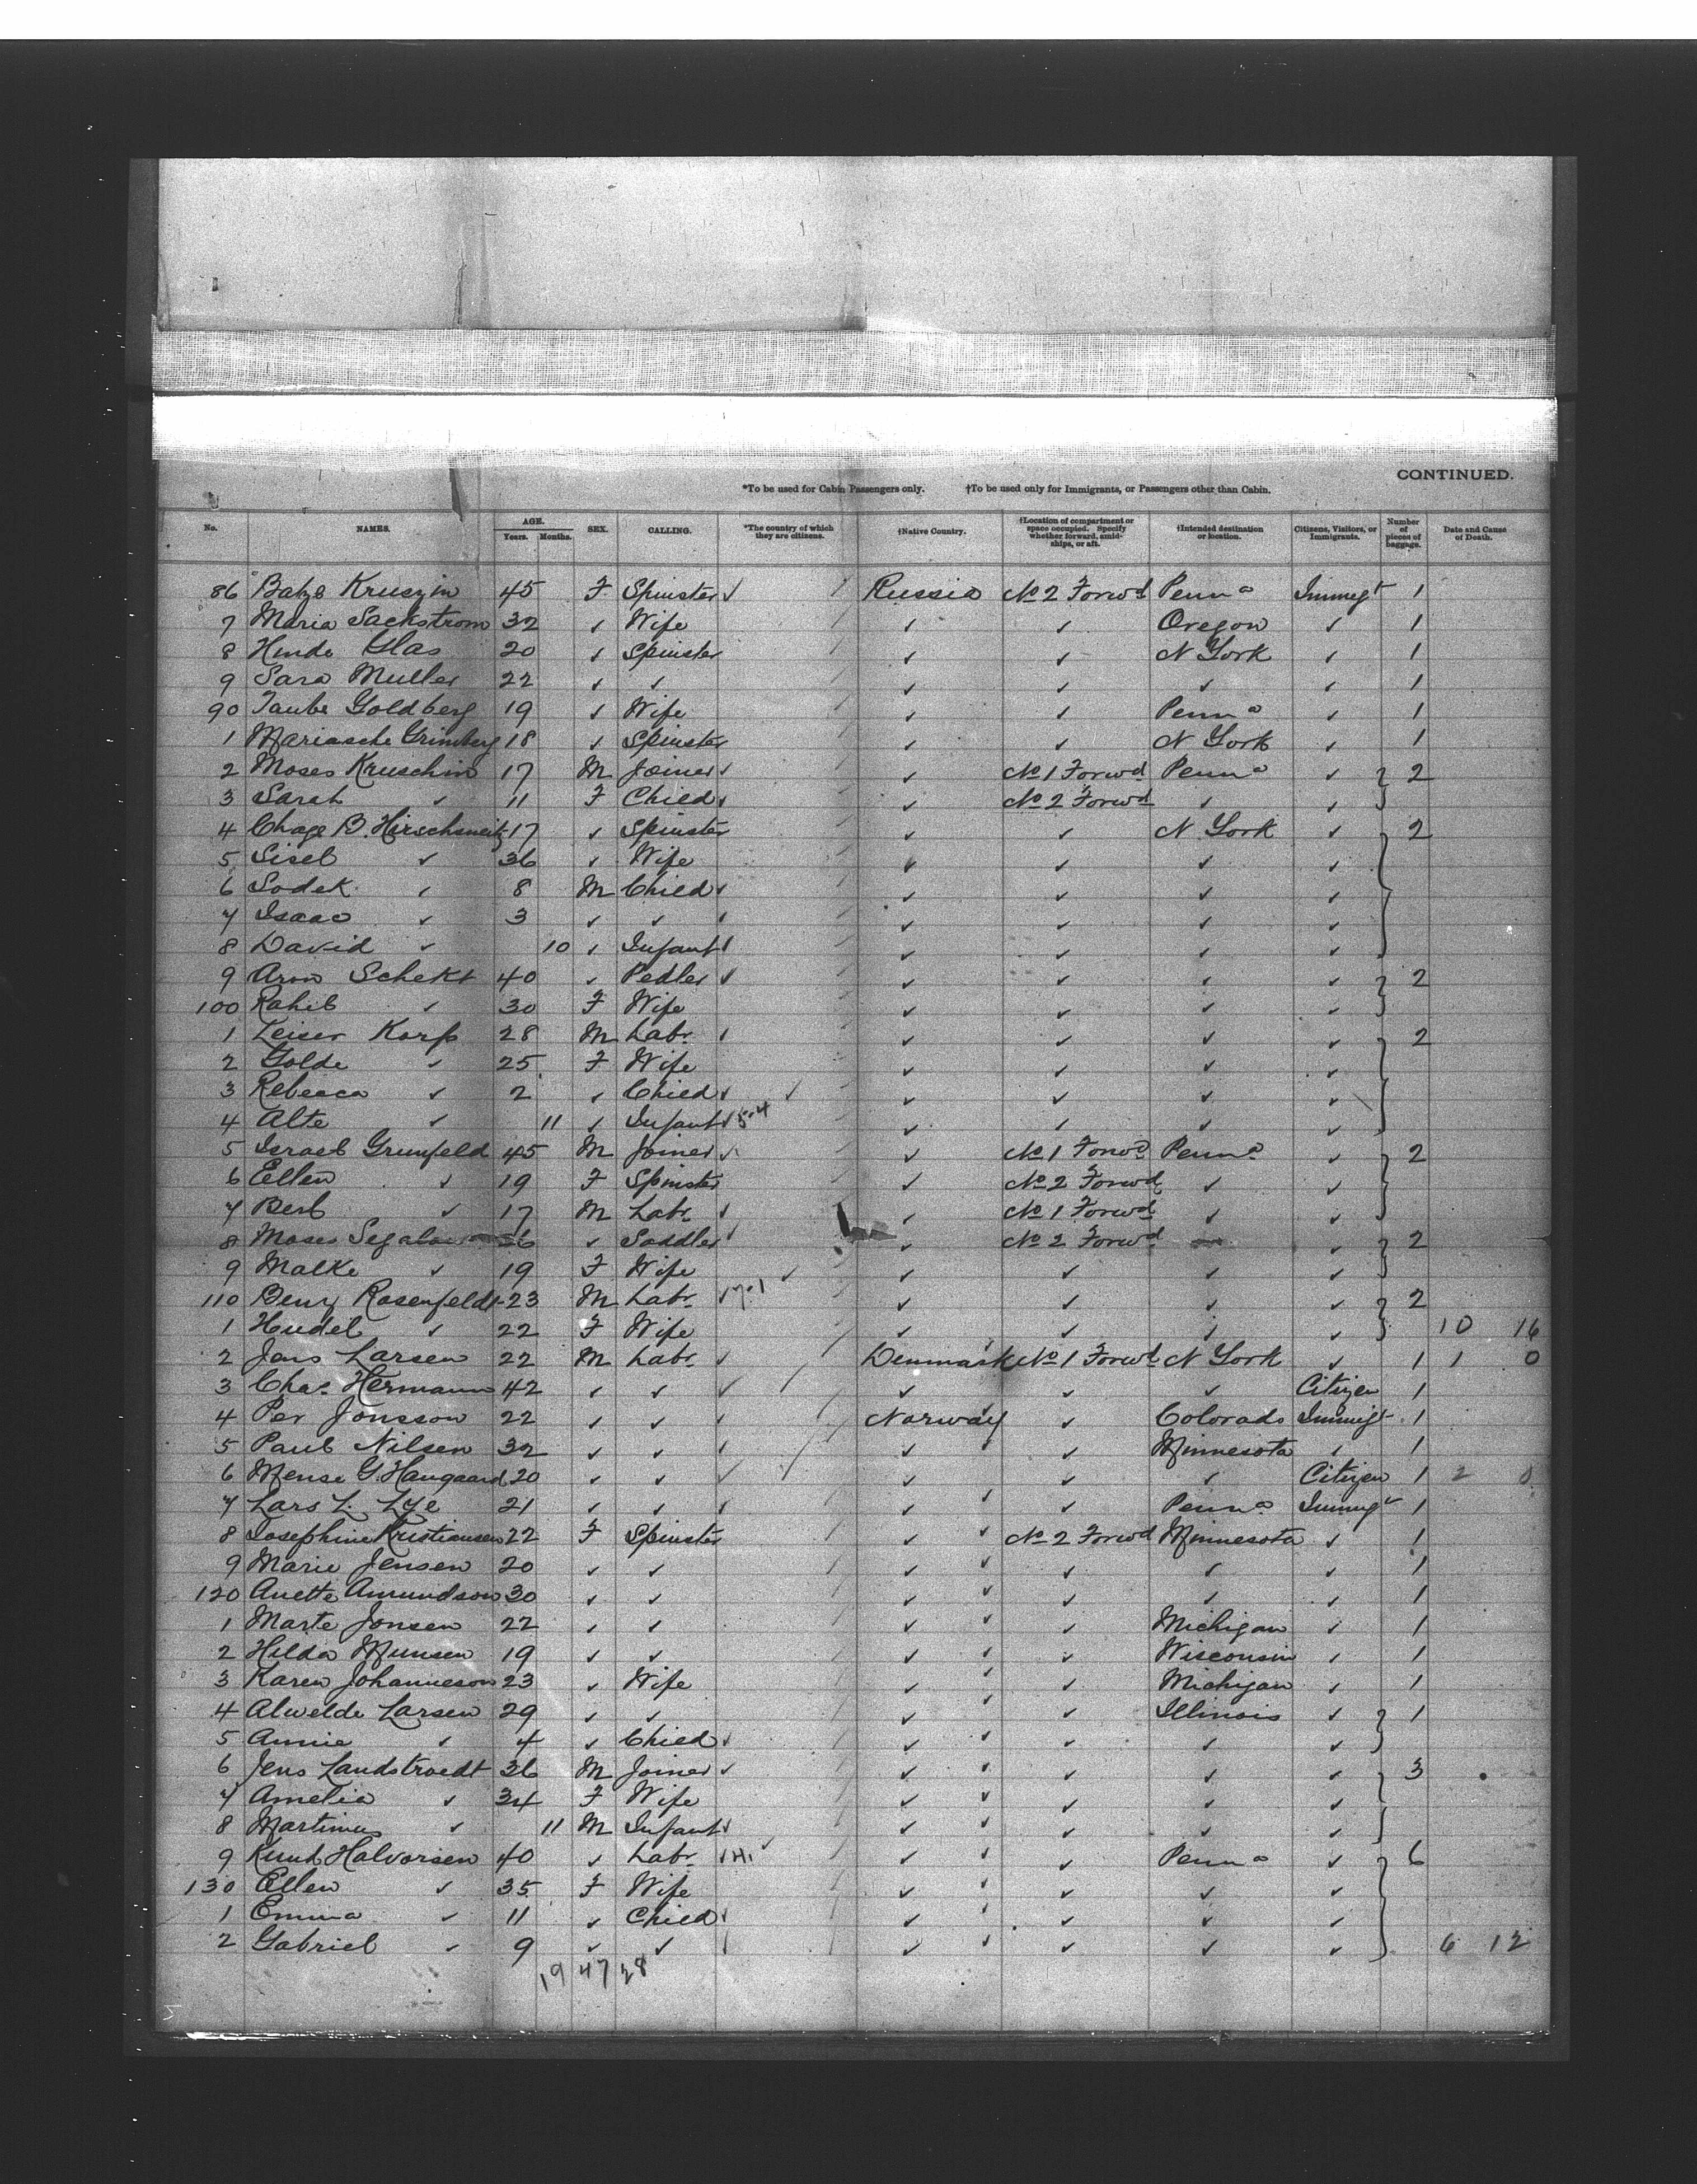 CONTINUED.
*To be used for Cabin Passengers only. †To be used only for Immigrants, or Passengers other than Cabin.
No. NAMES. AGE. Years. Months. SEX. CALLING. *The country of which they are citizens. †Native Country. †Location of compartment or space occupied. Specify whether forward, amidships, or aft. †Intended destination or location. Citizens, Visitors, or Immigrants. Number of pieces of baggage. Date and Cause of Death.
86 Kruszin 45 F Spinster ✓ Russia No 2 Forwd Penna Immigt 1
7 Maria Sackstrom 32 ✓ Wife ✓ ✓ Oregon ✓ 1
8 Hinde Glas 20 ✓ Spinster ✓ ✓ N York ✓ 1
9 Sara Muller 22 ✓ ✓ ✓ ✓ ✓ ✓ 1
90 Taube Goldberg 19 ✓ Wife ✓ ✓ Penna ✓ 1
1 Mariasche Grimberg 18 ✓ Spinster ✓ ✓ N York ✓ 1
2 Moses Kruschin 17 M Joiner ✓ ✓ No 1 Forwd Penna ✓ 2
3 Sarah ✓ 11 F Child ✓ ✓ No 2 Forwd ✓ ✓
4 Chage B. 17 ✓ Spinster ✓ ✓ N York ✓ 2
5 Sisel ✓ 36 ✓ Wife ✓ ✓ ✓ ✓
6 Sodek ✓ 8 M Child ✓ ✓ ✓ ✓ ✓
7 Isaac ✓ 3 ✓ ✓ ✓ ✓ ✓ ✓ ✓
8 David ✓ 10 ✓ Infant ✓ ✓ ✓ ✓ ✓
9 Aron Schekt 40 ✓ Pedler ✓ ✓ ✓ ✓ ✓ 2
100 Rahel ✓ 30 F Wife ✓ ✓ ✓ ✓
1 Leiser Karp 28 M Labr ✓ ✓ ✓ ✓ ✓ 2
2 Golde ✓ 25 F Wife ✓ ✓ ✓ ✓
3 Rebecca ✓ 2 ✓ Child ✓ ✓ ✓ ✓ ✓ ✓
4 Alte ✓ 11 ✓ Infant ✓ 5-4 ✓ ✓ ✓ ✓
5 Israel Grunfeld 45 M Joiner ✓ ✓ No 1 Forwd Penna ✓ 2
6 Ellen ✓ 19 F Spinster ✓ No 2 Forwd ✓ ✓
7 Berl ✓ 17 M Labr ✓ ✓ No 1 Forwd ✓ ✓
8 Moses 26 ✓ Saddler ✓ ✓ No 2 Forwd ✓ 2
9 Malke ✓ 19 F Wife ✓ ✓ ✓ ✓ ✓
110 Beny Rosenfeldt 23 M Labr ✓ 7-1 ✓ ✓ ✓ ✓ 2
1 Hudel ✓ 22 F Wife ✓ ✓ ✓ ✓ 10 16
2 Jens Larsen 22 M Labr ✓ Denmark No 1 Forwd N York ✓ 1 1 0
3 Chas Hermann 42 ✓ ✓ ✓ ✓ ✓ ✓ ✓ Citizen 1
4 Per Jonsson 22 ✓ ✓ ✓ Norway ✓ Colorado Immigt 1
5 Paul Nilsen 32 ✓ ✓ ✓ ✓ ✓ Minnesota ✓ 1
6 Mense G. Haugaard 20 ✓ ✓ ✓ ✓ ✓ ✓ ✓ Citizen 1 2 0
7 Lars L. Lye 21 ✓ ✓ ✓ ✓ ✓ Penna Immigt 1
8 Josephine Kristiansen 22 F Spinster ✓ No 2 Forwd Minnesota ✓ 1
9 Marie Jensen 20 ✓ ✓ ✓ ✓ ✓ ✓ 1
120 Anette Amundson 30 ✓ ✓ ✓ ✓ ✓ ✓ 1
1 Marte Jonsen 22 ✓ ✓ ✓ ✓ Michigan ✓ 1
2 Hilda Munsen 19 ✓ ✓ ✓ ✓ Wisconsin ✓ 1
3 Karen Johanneson 23 ✓ Wife ✓ ✓ Michigan ✓ 1
4 Alwelde Larsen 29 ✓ ✓ ✓ ✓ Illinois ✓ 1
5 Annie ✓ 4 ✓ Child ✓ ✓ ✓ ✓ ✓
6 Jens Landstroedt 36 M Joiner ✓ ✓ ✓ ✓ ✓ 3
7 Amelia ✓ 34 F Wife ✓ ✓ ✓ ✓
8 Martinus ✓ 11 M Infant ✓ ✓ ✓ ✓ ✓
9 Knud Halvorsen 40 ✓ Labr ✓ ✓ ✓ Penna ✓ 6
130 Ellen ✓ 35 F Wife ✓ ✓ ✓ ✓
1 Emma ✓ 11 ✓ Child ✓ ✓ ✓ ✓ ✓
2 Gabriel ✓ 9 ✓ ✓ ✓ ✓ ✓ ✓ ✓ 6 12
19 47 28